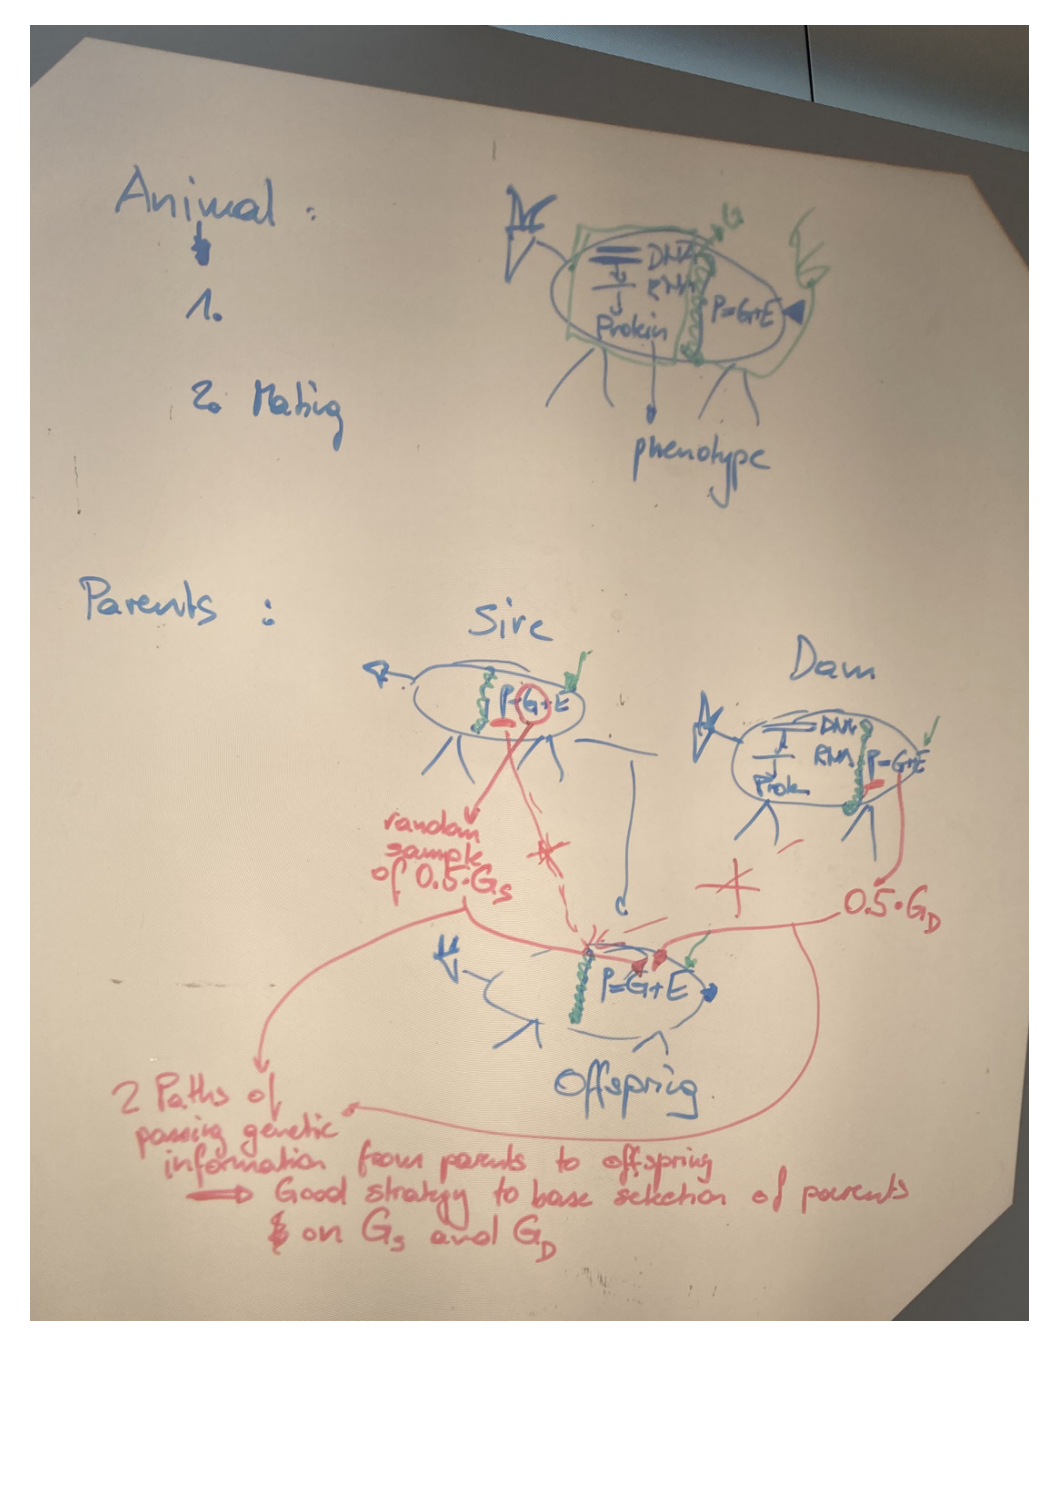 Animal :
1.
2. Mating
G
DNA
RNA
Protein
P=G+E
phenotype
Parents :
Sire
P=G+E
Dam
DNA
RNA
Protein
P=G+E
random
sample
of 0.5·G_S
0.5·G_D
P=G+E
Offspring
2 Paths of
passing genetic
information from parents to offspring
⇒ Good strategy to base selection of parents
on G_S and G_D